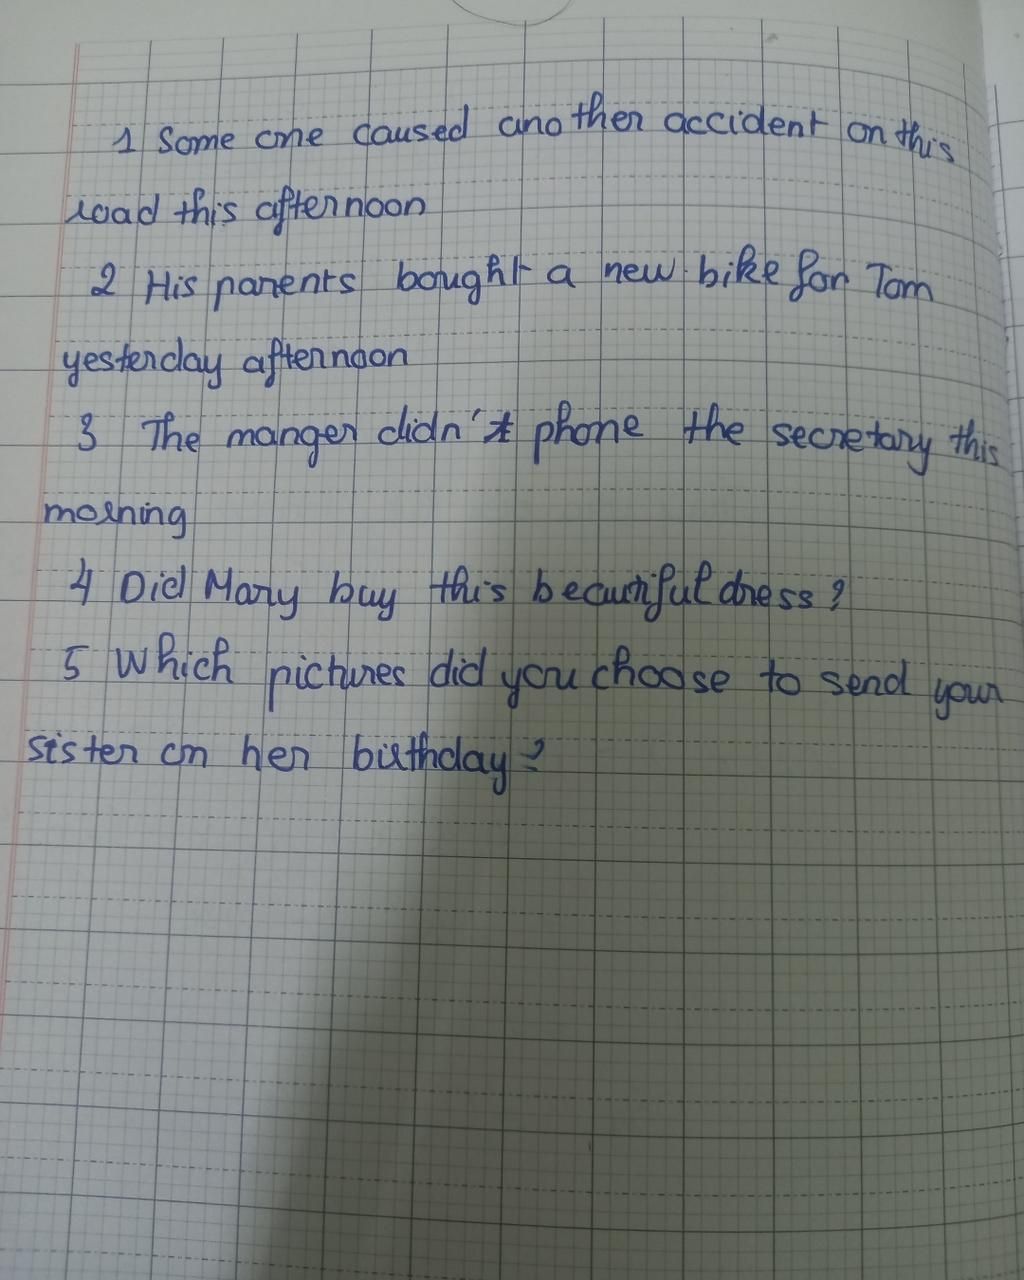 1 Some one caused ano ther accident on this
road this afternoon
2 His parents bought a new bike for Tom
yesterday afternoon
3 The manger didn't phone the secretary this
morning
4 Did Mary buy this beautiful dress?
5 Which pictures did you choose to send your
sister on her birthday?